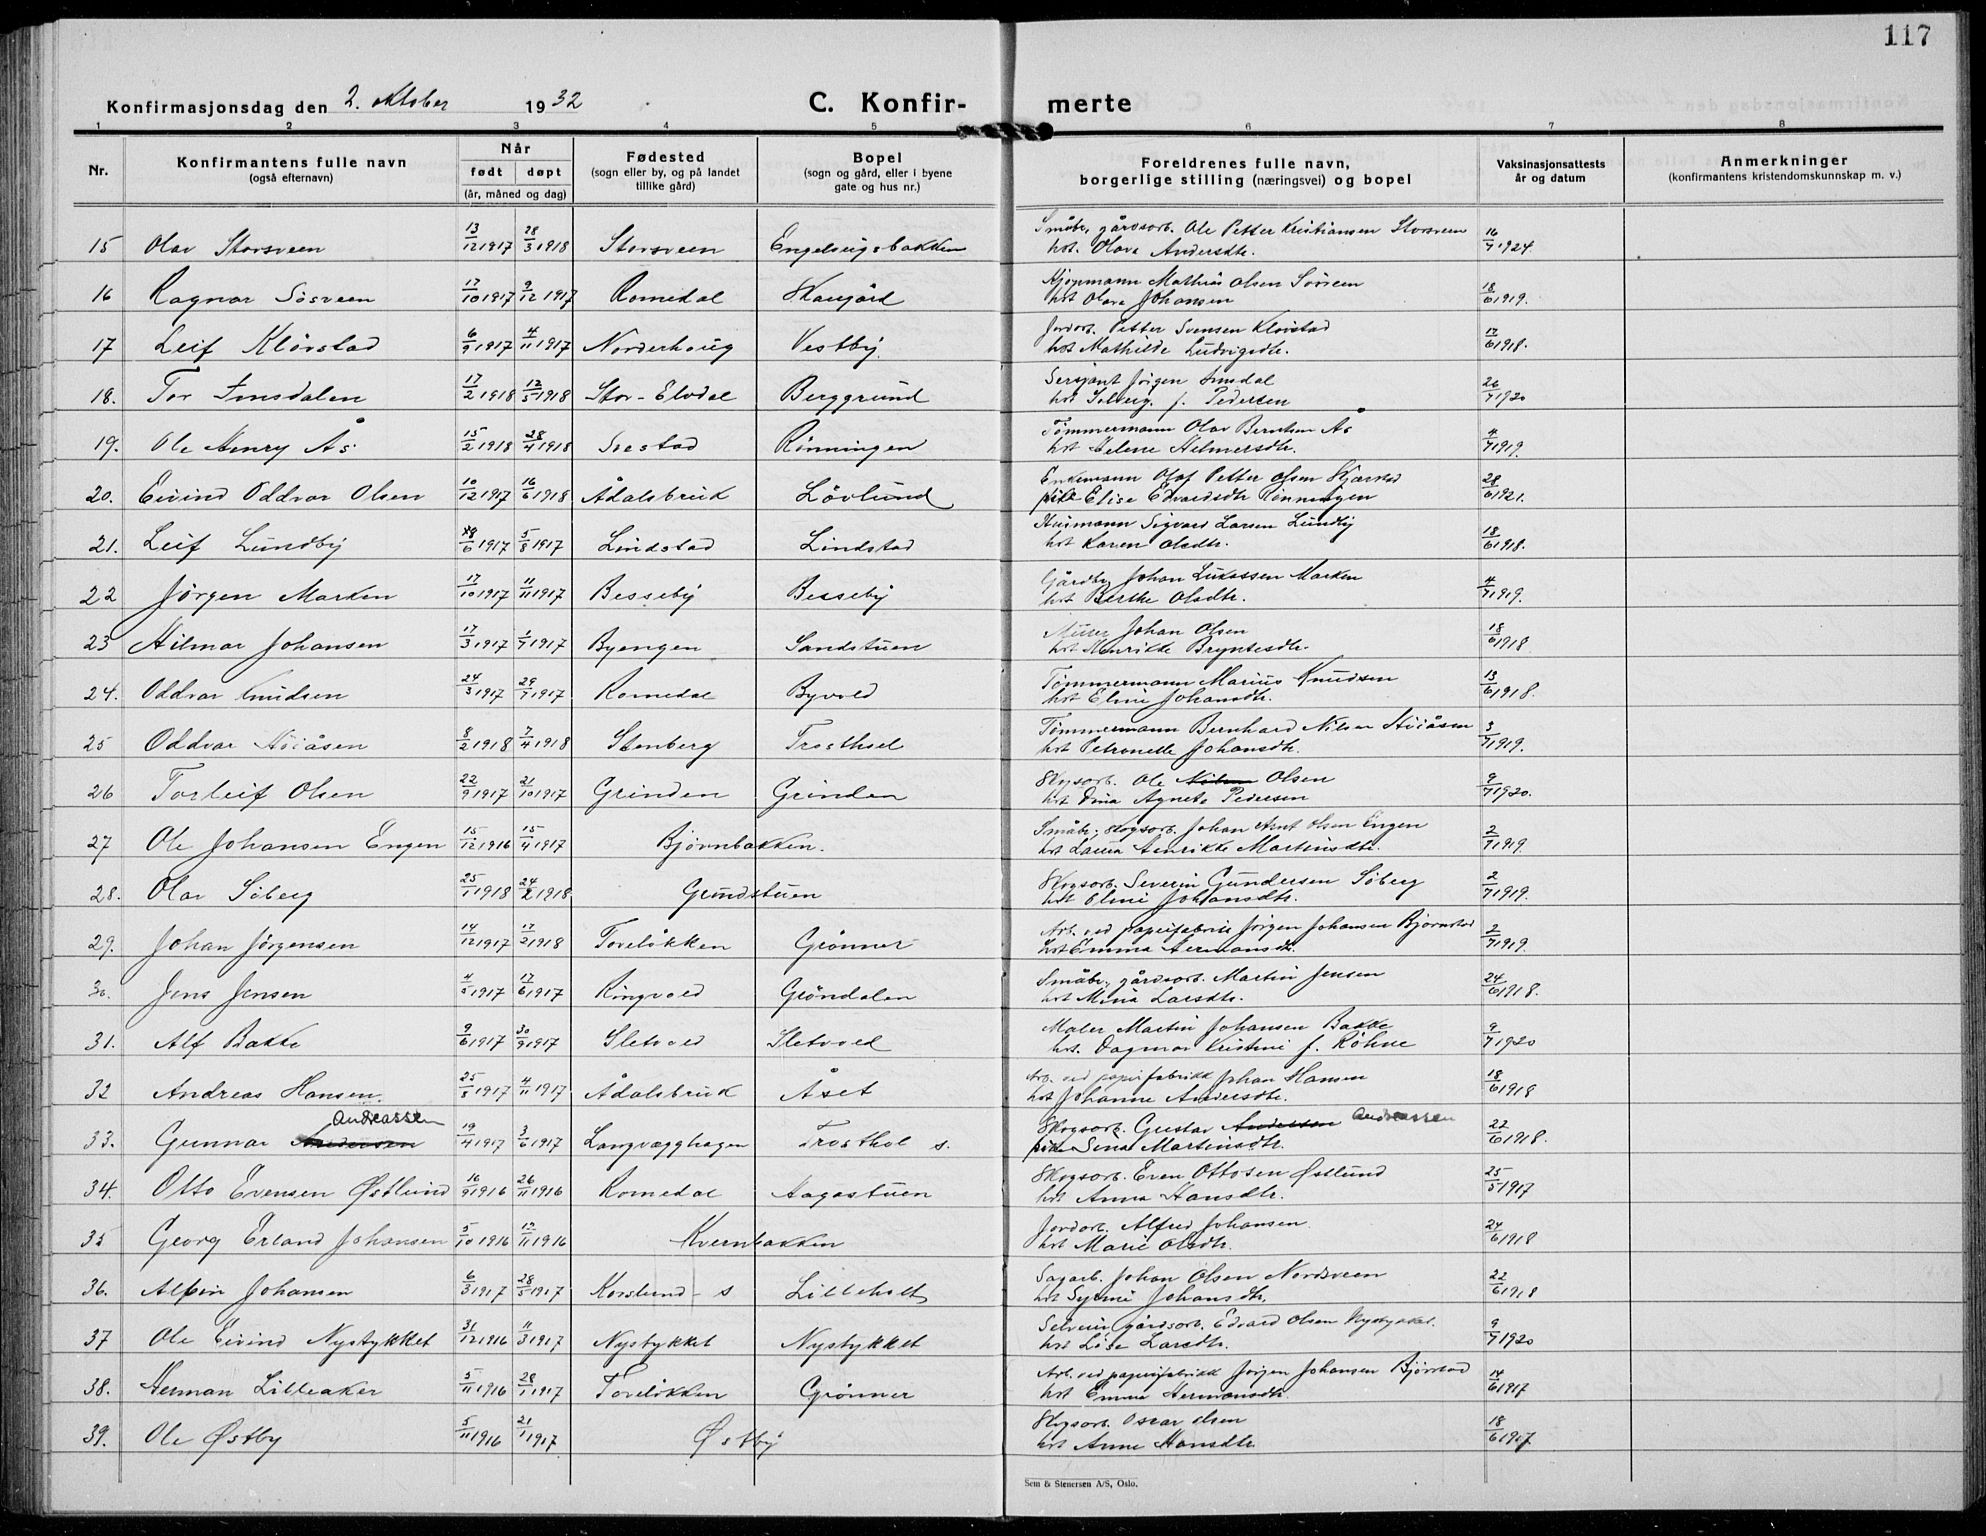 117
Konfirmasjonsdag den 2. oktober 1932 C. Konfir- merte
1 2 3 4 5 6 7 8
Nr. Konfirmantens fulle navn (også efternavn) Når født døpt (år, måned og dag) Fødested (sogn eller by, og på landet tillike gård) Bopel (sogn og gård, eller i byene gate og hus nr.) Foreldrenes fulle navn, borgerlige stilling (næringsvei) og bopel Vaksinasjonsattests år og datum Anmerkninger (konfirmantens kristendomskunnskap m. v.)
15 Olav Storsveen 13/12 1917 28/3 1918 Storsveen Engelaugsbakken Småbr, gårdsarb. Ole Petter Kristiansen Storsveen 16/7 1924.
hst. Olava Andersdtr.
16 Ragnar Sösveen 17/10 1917 9/12 1917 Romedal Haugård Kjöpmann Mathias Olsen 18/6 1919.
hst Olava Johansen
17 Leif Klövstad 6/9 1917 4/11 1917 Norderhoug Vestby Jordarb. Petter Svensen Klövstad 17/6 1918.
hst Mathilde Ludvigsdtr.
18. Tor Imsdalen 17/2 1918 12/5 1918 Stor-Elvdal Berggrund Sersjant Jörgen Imsdal 26/7 1920
hst Solveig f. Pedersen
19. Ole Henry Ås 15/2 1918 28/4 1918 Svestad Rönningen Tömmermann Olav Bernhen Ås 4/7 1919.
hst Helene Helmersdtr.
20. Eivind Oddvar Olsen 10/12 1917 16/6 1918 Ådalsbruk Lövlund Enkemann Olaf Petter Olsen 28/6 1921.
pike Elise Edvardsdtr Rönningen
21. Leif Lundby 18/6 1917 5/8 1917 Lindstad Lindstad Husmann Sigvart Larsen Lundby 18/6 1918.
hst Karen Olsdtr.
22 Jørgen Marken 17/10 1917 11/11 1917 Besseby Besseby Gårdbr, Johan Lukassen Marken 4/7 1919.
hst Berthe Olsdtr.
23 Hilmar Johansen 17/3 1917 1/7 1917 Byengen Sandstuen Murer Johan Olsen 18/6 1918
hst Henrikke Bryntesdtr.
24. Oddvar Knudsen 24/3 1917 29/7 1917 Romedal Byvold Tömmermann Marius Knudsen 13/6 1918.
hst Eline Johansdtr.
25 Oddvar Höiåsen 8/2 1918 7/4 1918 Stenberg Trosthol Tömmermann Bernhard Nilsen Höiåsen 3/7 1919.
hst Petronelle Johansdtr.
26 Torleif Olsen 22/9 1917 21/10 1917 Grinden Grinden Skogsarb. Ole Nilsen Olsen 9/7 1920.
hst Dina Agnete Pedersen
27 Ole Johansen Engen 15/12 1916 15/4 1917 Bjørnbakken. Småbr, skogsarb. Johan Arnt Olsen Engen 2/7 1919.
hst Laura Henrikke Martinsdtr.
28. Olav Söberg 25/1 1918 24/2 1918 Grundstuen Skogsarb. Severin Gundersen Söberg 2/7 1919.
hst Eline Johansdtr.
29. Johan Jørgensen 14/12 1917 17/2 1918 Tovelökken Grönner Arb. ved papirfabrik Jørgen Johansen Bjørnstad 2/7 1919.
hst Emma Hermansdtr.
30. Jens Jensen 4/5 1917 17/6 1917 Ringvold Gröndalen Småbr, gårdsarb. Martin Jensen 24/6 1918.
hst Mina Larsdtr.
31. Alf Bakke 9/6 1917 30/9 1917 Sletvold Sletvold Maler Martin Johansen Bakke 9/7 1920
hst. Dagmar Kristine f. Röhne
32 Andreas Hansen. 25/8 1917 4/11 1917 Ådalsbruk Åset Arb. ved papirfabrikk Johan Hansen 18/6 1918
hst Johanne Andersdtr.
33. Gunnar Andersen Andreassen 19/4 1917 3/6 1917 Langvægghagen Trosthol s. Skogsarb. Gustav Andersen Andreassen 22/6 1918.
pike Sina Martinsdtr.
34. Otto Evensen Østlund 16/9 1916 26/11 1916 Romedal Hagastuen Skogsarb. Even Ottosen Østlund 25/5 1917
hst Anna Hansdtr.
35 Georg Erland Johansen 5/10 1916 12/11 1916 Kvernbakken Jordarb. Alfred Johansen 24/6 1918
hst Marie Olsdtr.
36. Alfin Johansen 6/3 1917 28/5 1917 Korslund - s Lilleholt Sagarb. Johan Olsen Nordsveen 22/6 1918
hst Syrine Johansdtr.
37 Ole Eivind Nystykket 31/12 1916 11/3 1917 Nystykket Nystykket Selveier, gårdsarb. Edvard Olsen Nystykket. 9/7 1920
hst Lise Larsdtr.
38. Herman Lilleaker 5/11 1916 28/1 1917 Tovelökken Grönner Arb. ved papirfabrikk Jörgen Johansen Bjørnstad 14/6 1917
hst Emma Hermansdtr.
39. Ole Østby 5/11 1916 21/1 1917 Østby Skogsarb. Oscar Olsen 18/6 1917
hst Anne Hansdtr.
Sem & Stenersen A/S, Oslo.